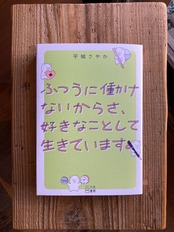 平城さやか
ふつうに働け
ないからさ、
好きなことして
生きています。